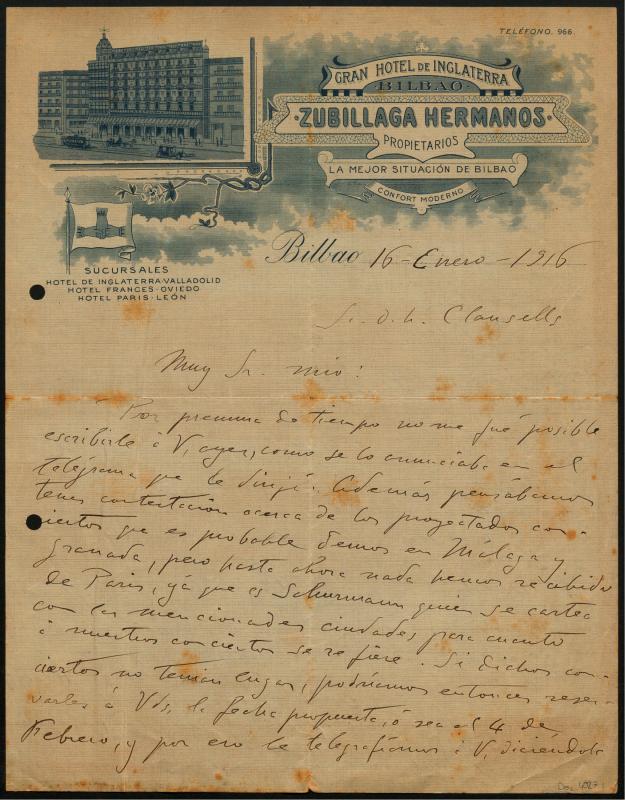 TELÉFONO. 966.
GRAN HOTEL DE INGLATERRA
BILBAO
ZUBILLAGA HERMANOS
PROPIETARIOS
LA MEJOR SITUACIÓN DE BILBAO
CONFORT MODERNO
SUCURSALES
HOTEL DE INGLATERRA·VALLADOLID
HOTEL FRANCES·OVIEDO
HOTEL PARIS·LEÓN
Bilbao 16-Enero-1916
Sr. D. Clausells
Muy Sr. mio:
Por premura de tiempo no me fué posible
escribirle á V, ayer, como se lo anunciaba en el
telégrama que le dirijí. Además pensábamos
tener contestación acerca de los proyectados con-
ciertos que es probable demos en Málaga y
Granada, pero hasta ahora nada hemos recibido
de Paris, yá que es Schurmann quien se cartea
con las mencionadas ciudades para cuanto
á nuestros conciertos se refiere. Si dichos con-
ciertos no tenian lugar, podriamos entonces reser-
varles á Vds, la fecha propuesta, ó sea el 4 de
Febrero, y por eso le telegrafiamos á V, diciéndole